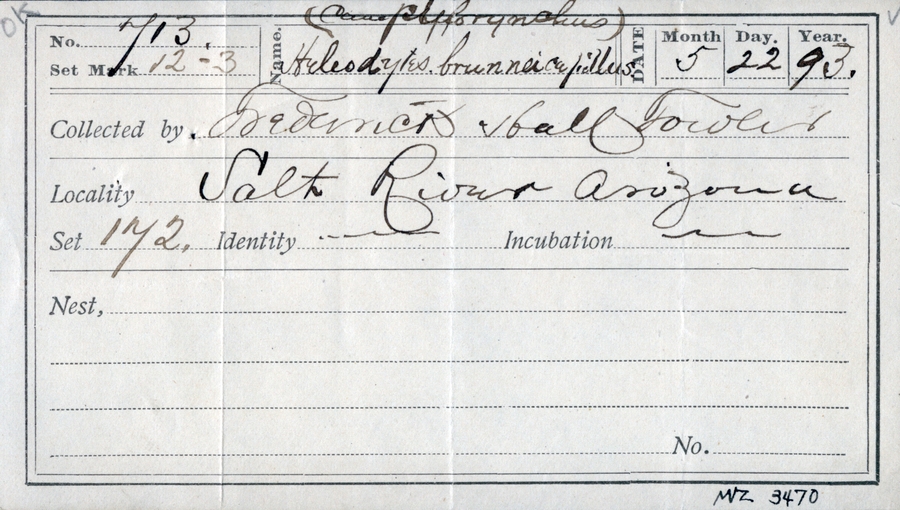 OK
(Campylhorynchus)
No. 713.
Name. Heleodytes brunneicapillus
DATE Month Day. Year.
5 22 93.
Set Mark 12-3
Collected by Frederick Hall Fowler
Locality Salt River Arizona
Set 172. Identity — Incubation —
Nest,
No.
MVZ 3470